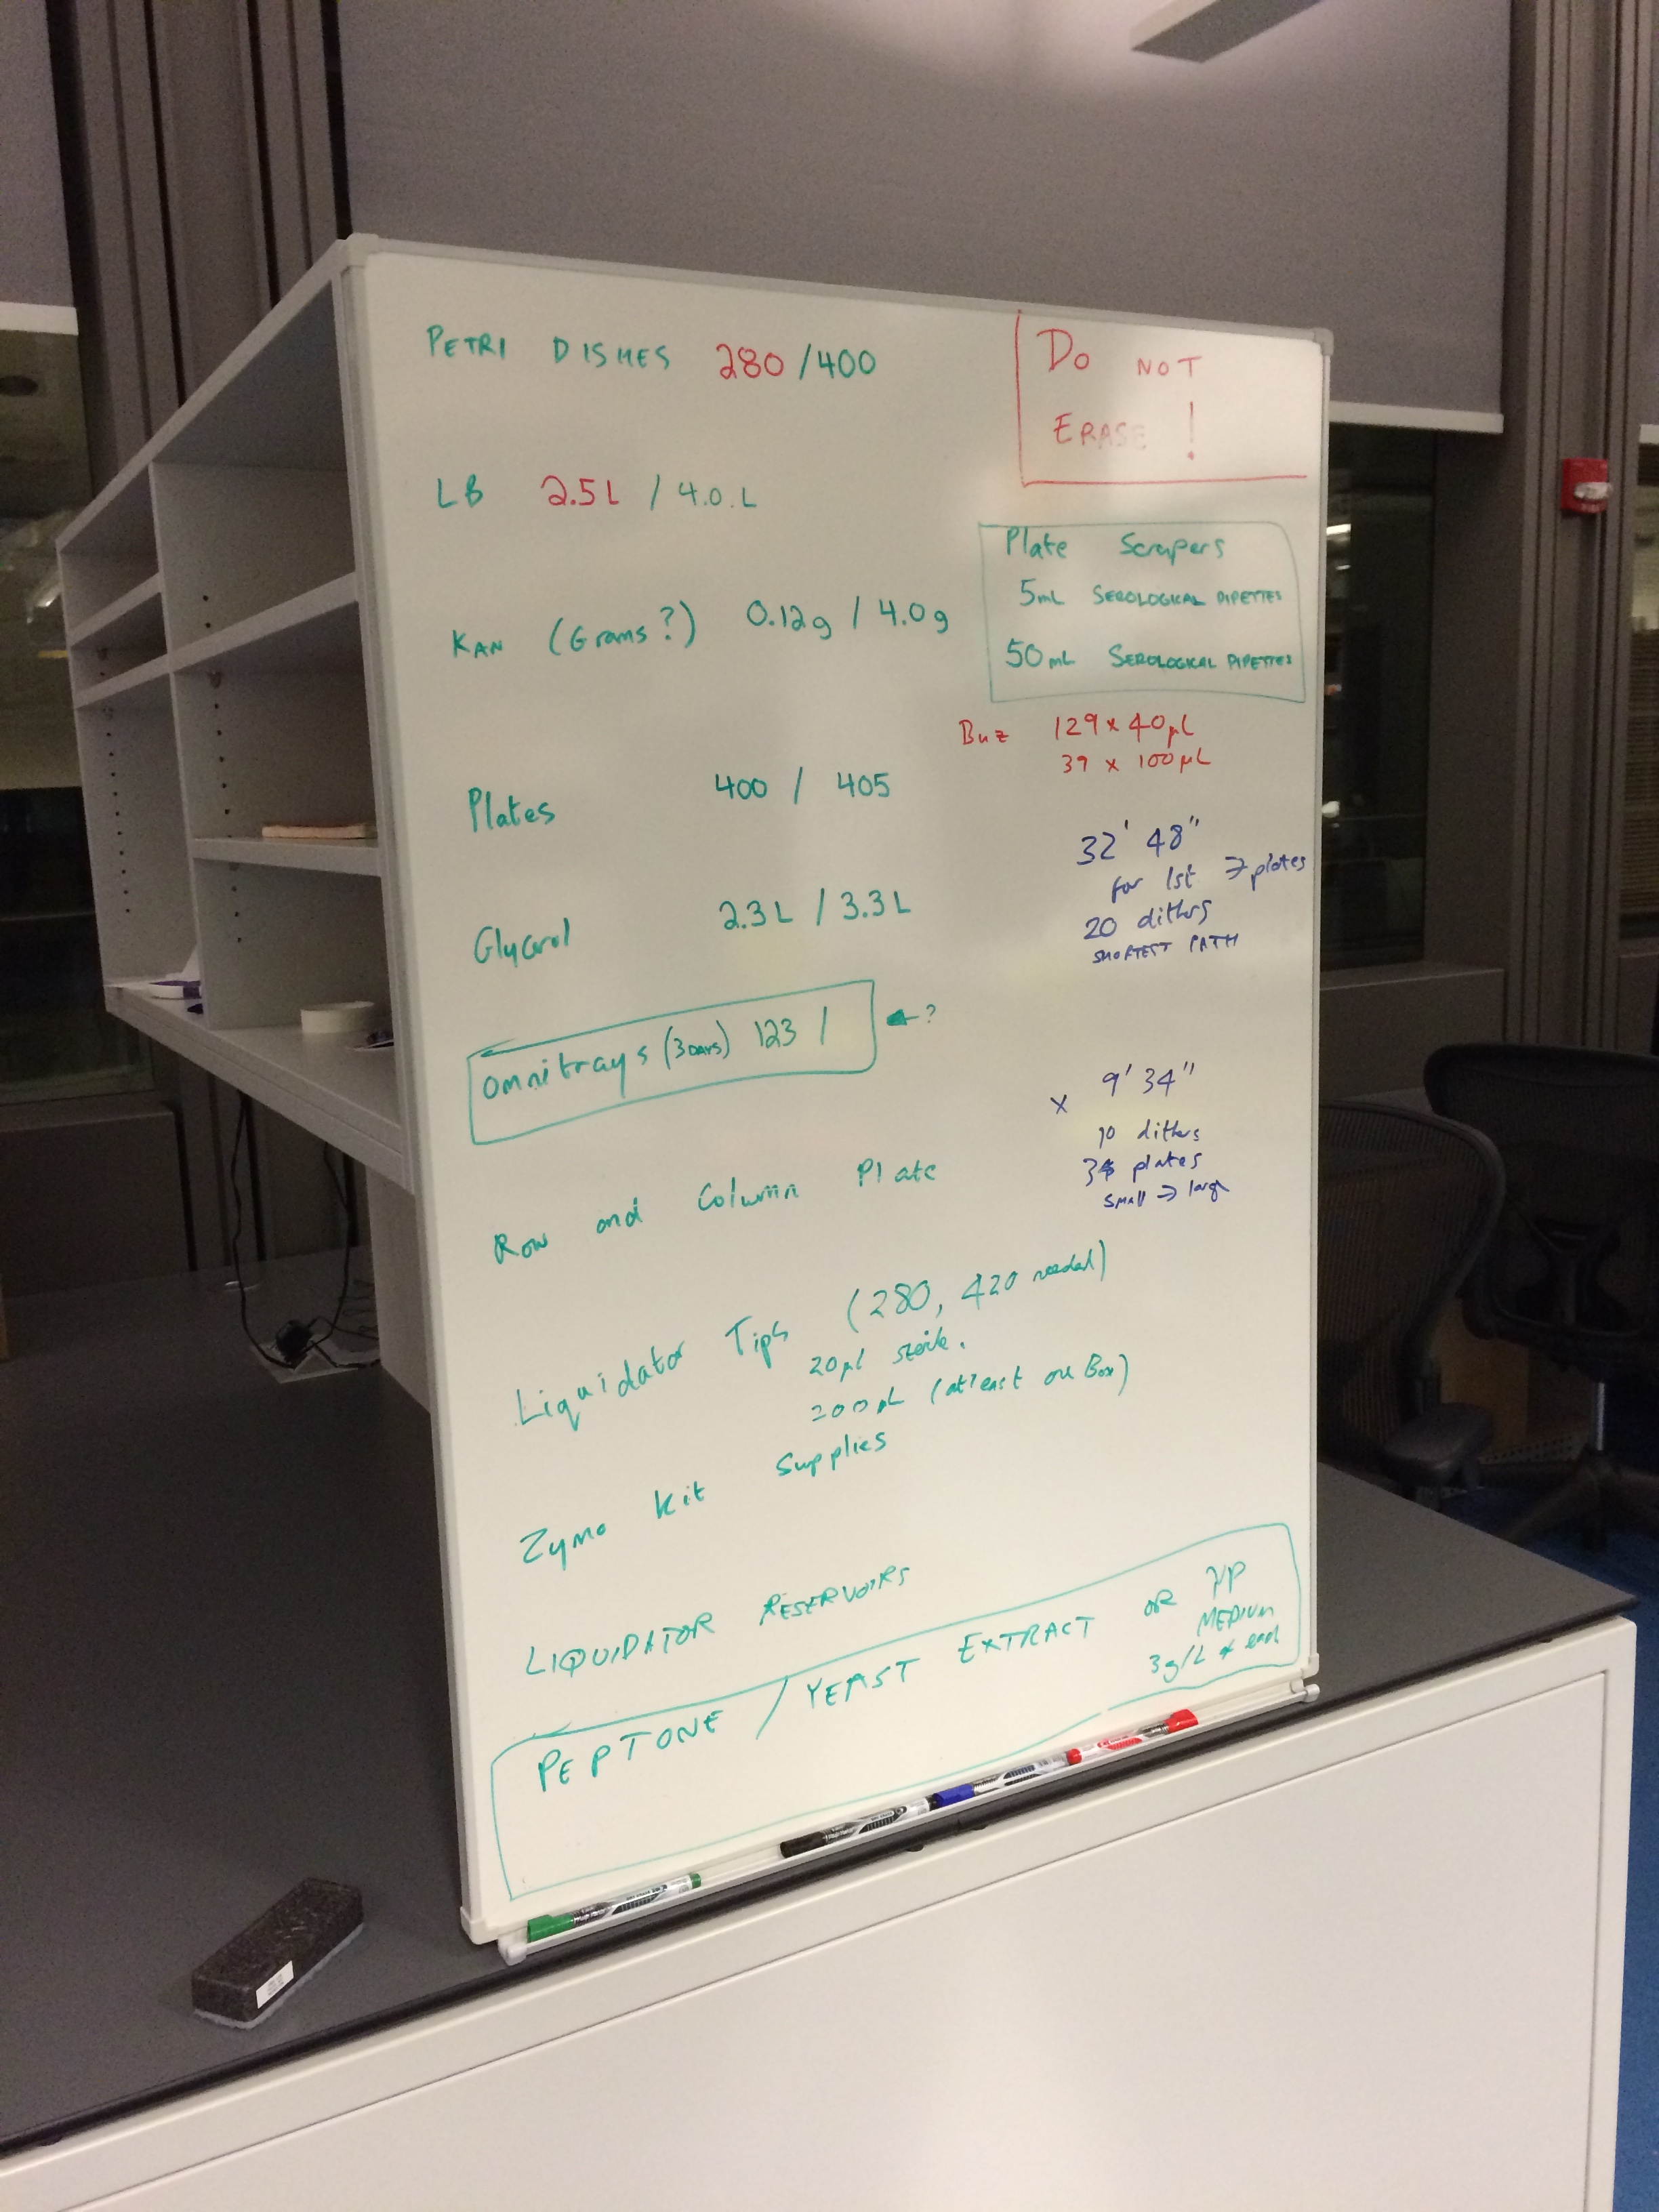 PETRI DISHES 280/400
DO NOT
ERASE!
LB 2.5L / 4.0.L
Plate Scrapers
5mL SEROLOGICAL PIPETTES
50mL SEROLOGICAL PIPETTES
KAN (Grams?) 0.12g / 4.0g
Buz 129 x 40µL
39 x 100µL
Plates 400 / 405
32' 48"
for 1st 7 plates
20 dithers
SHORTEST PATH
Glycerol 2.3L / 3.3L
omnitrays (3 DAYS) 123 /
←?
x 9' 34"
10 dithers
plates
small → large
Row and Column Plate
Liquidator Tips (280, 420 needed)
20µl sterile.
200µL (at least one Box)
Zymo Kit Supplies
LIQUIDATOR RESERVOIRS
PEPTONE / YEAST EXTRACT OR YP
MEDIUM
3g/L of each